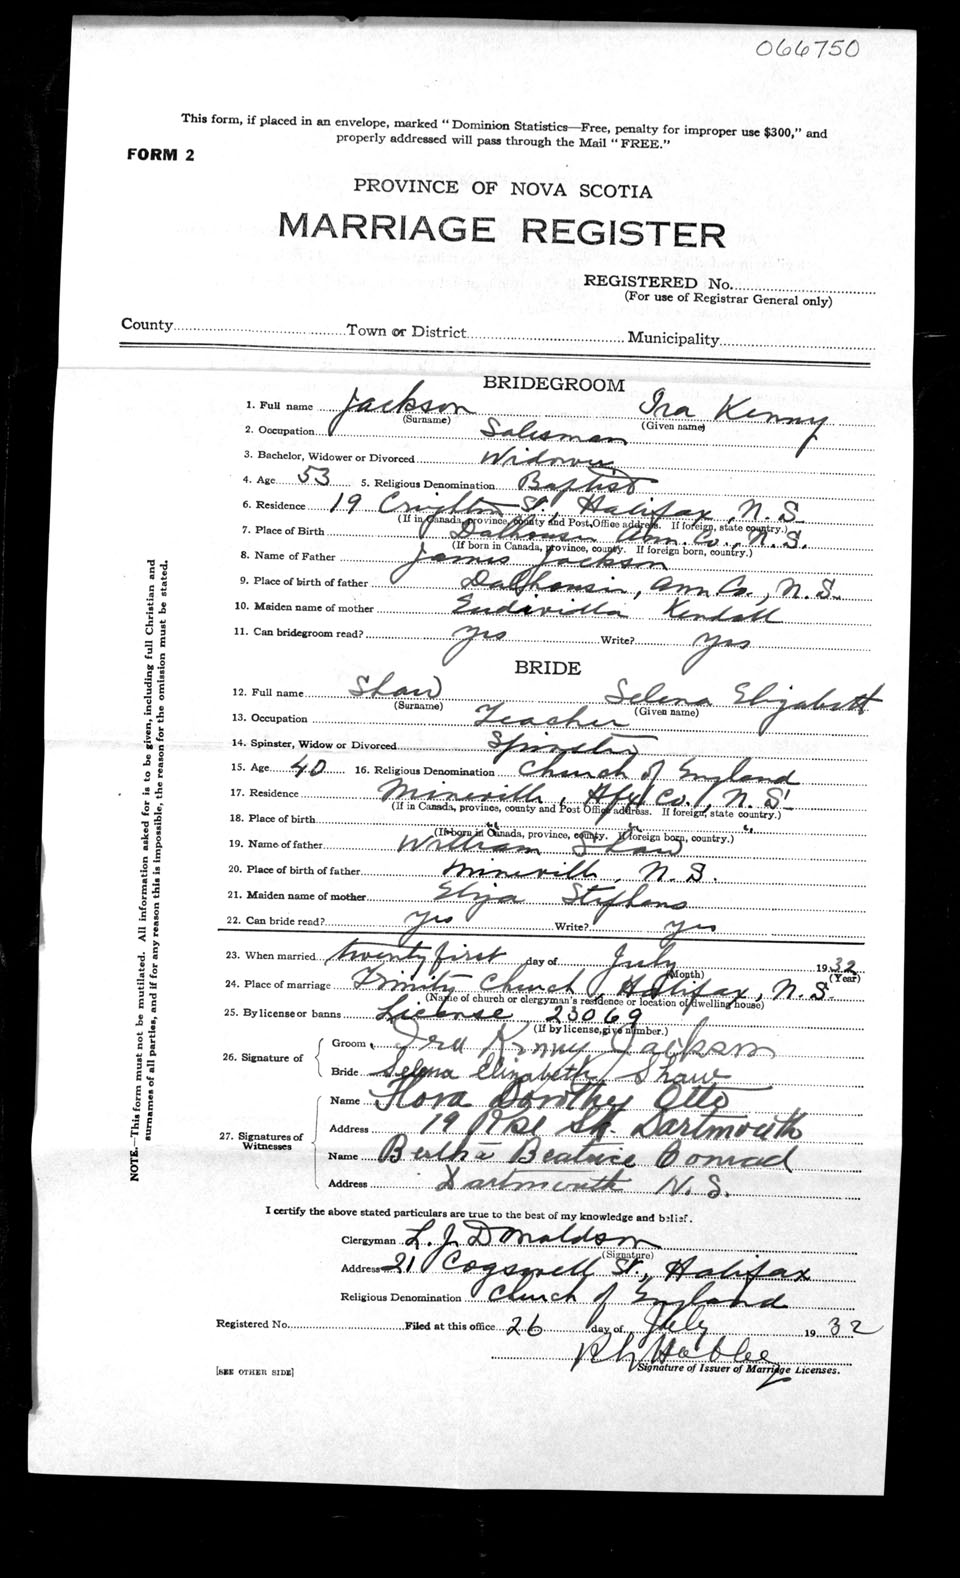 066750
This form, if placed in an envelope, marked "Dominion Statistics—Free, penalty for improper use $300," and
properly addressed will pass through the Mail "FREE."
FORM 2
PROVINCE OF NOVA SCOTIA
MARRIAGE REGISTER
REGISTERED No.
(For use of Registrar General only)
County Town or District Municipality
BRIDEGROOM
1. Full name Jackson Ira Kenny
(Surname) (Given name)
2. Occupation Salesman
3. Bachelor, Widower or Divorced Widower
4. Age 53 5. Religious Denomination Baptist
6. Residence 19 Crighton St., Halifax, N.S.
(If in Canada, province, county and Post Office address. If foreign, state country.)
7. Place of Birth Dalhousie Ann. Co., N.S.
(If born in Canada, province, county. If foreign born, country.)
8. Name of Father James Jackson
9. Place of birth of father Dalhousie, Ann Co., N.S.
10. Maiden name of mother Kendall
11. Can bridegroom read? yes Write? yes
BRIDE
12. Full name Shaw Selena Elizabeth
(Surname) (Given name)
13. Occupation Teacher
14. Spinster, Widow or Divorced Spinster
15. Age 40 16. Religious Denomination Church of England
17. Residence Mineville, Hfx Co., N.S.
(If in Canada, province, county and Post Office address. If foreign, state country.)
18. Place of birth " " "
(If born in Canada, province, county. If foreign born, country.)
19. Name of father William Shaw
20. Place of birth of father Mineville, N.S.
21. Maiden name of mother Eliza Stephens
22. Can bride read? yes Write? yes
23. When married twenty first day of July 1932
(Month) (Year)
24. Place of marriage Trinity Church Halifax, N.S.
(Name of church or clergyman's residence or location of dwelling house)
25. By license or banns License 23069
(If by license, give number.)
26. Signature of
Groom Ira Kenny Jackson
Bride Selena Elizabeth Shaw
27. Signatures of Witnesses
Name Flora Dorothy Otto
Address 19 St. Dartmouth
Name Bertha Beatrice Conrad
Address Dartmouth N.S.
I certify the above stated particulars are true to the best of my knowledge and belief.
Clergyman L. J. Donaldson
(Signature)
Address 21 Cogswell St., Halifax
Religious Denomination Church of England
Registered No. Filed at this office 26 day of July 1932
Signature of Issuer of Marriage Licenses.
[SEE OTHER SIDE]
NOTE.—This form must not be mutilated. All information asked for is to be given, including full Christian and
surnames of all parties, and if for any reason this is impossible, the reason for the omission must be stated.